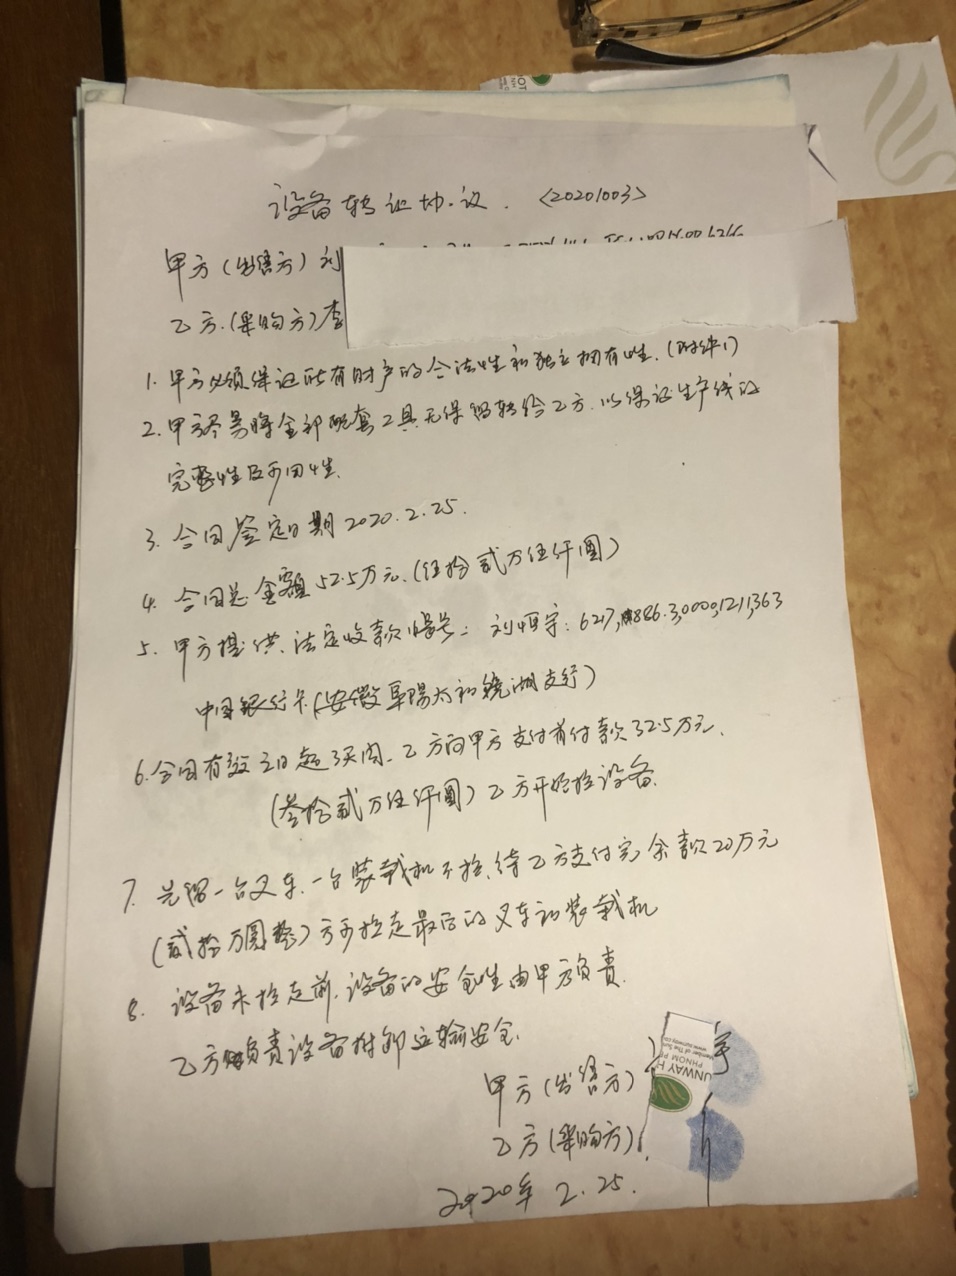 设备转让协议. <2020/003>
甲方(出售方)刘
乙方.(采购方)李
1. 甲方必须保证所有财产的合法性和独立拥有性.(附件1)
2. 甲方务需将全部配套工具无保留转给乙方.以保证生产线的
完整性及可用性.
3. 合同签定日期2020.2.25.
4. 合同总金额52.5万元.(伍拾贰万伍仟圆)
5. 甲方提供.法定收款帐号: 刘恒宇: 6217,886.3,000,1211,363
中国银行卡(安徽阜陽太和镜湖支行)
6.合同有效之日起3天内.乙方向甲方支付首付款32.5万元.
(叁拾贰万伍仟圆)乙方开始拉设备.
7. 先留一台叉车.一台装载机不拉.待乙方支付完余款20万元
(贰拾万圆整)方可拉走最后的叉车和装载机
8. 设备未拉走前.设备的安全性由甲方负责.
乙方负责设备拆卸运输安全.
甲方(出售方)
乙方(采购方)
2020年2.25.
UNWAY H
PHNOM P
Member of The Sun